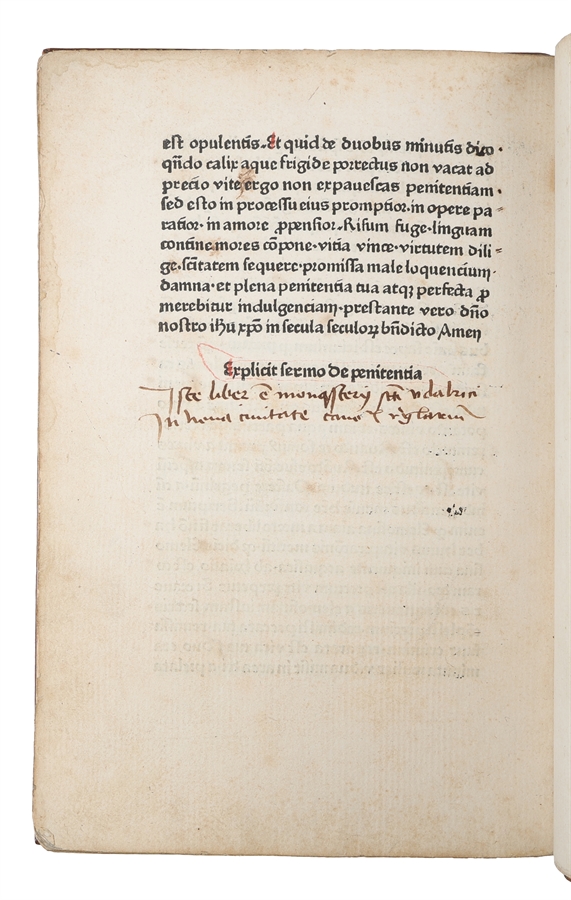 est opulentis. Et quid de duobus minutis dico.
qñdo calix aque frigide porrectus non vacat ad
precio vite ergo non expauescas penitentiam.
sed esto in processu eius promptior. in opere pa⸗
ratior. in amore ꝓpensior. Risum fuge. linguam
contine. mores cõpone. vitia vince. virtutem dili⸗
ge. scĩtatem sequere. promissa male loquencium.
damna. et plena penitentia tua atqꝫ perfecta ꝓ
merebitur indulgenciam. prestante vero dño
nostro ihũ xp̃o in secula seculoꝝ bñdicto Amen
Explicit sermo de penitentia
Iste liber ẽ monasterij scti vdalrici
In noua ciuitate canoi reglariũ